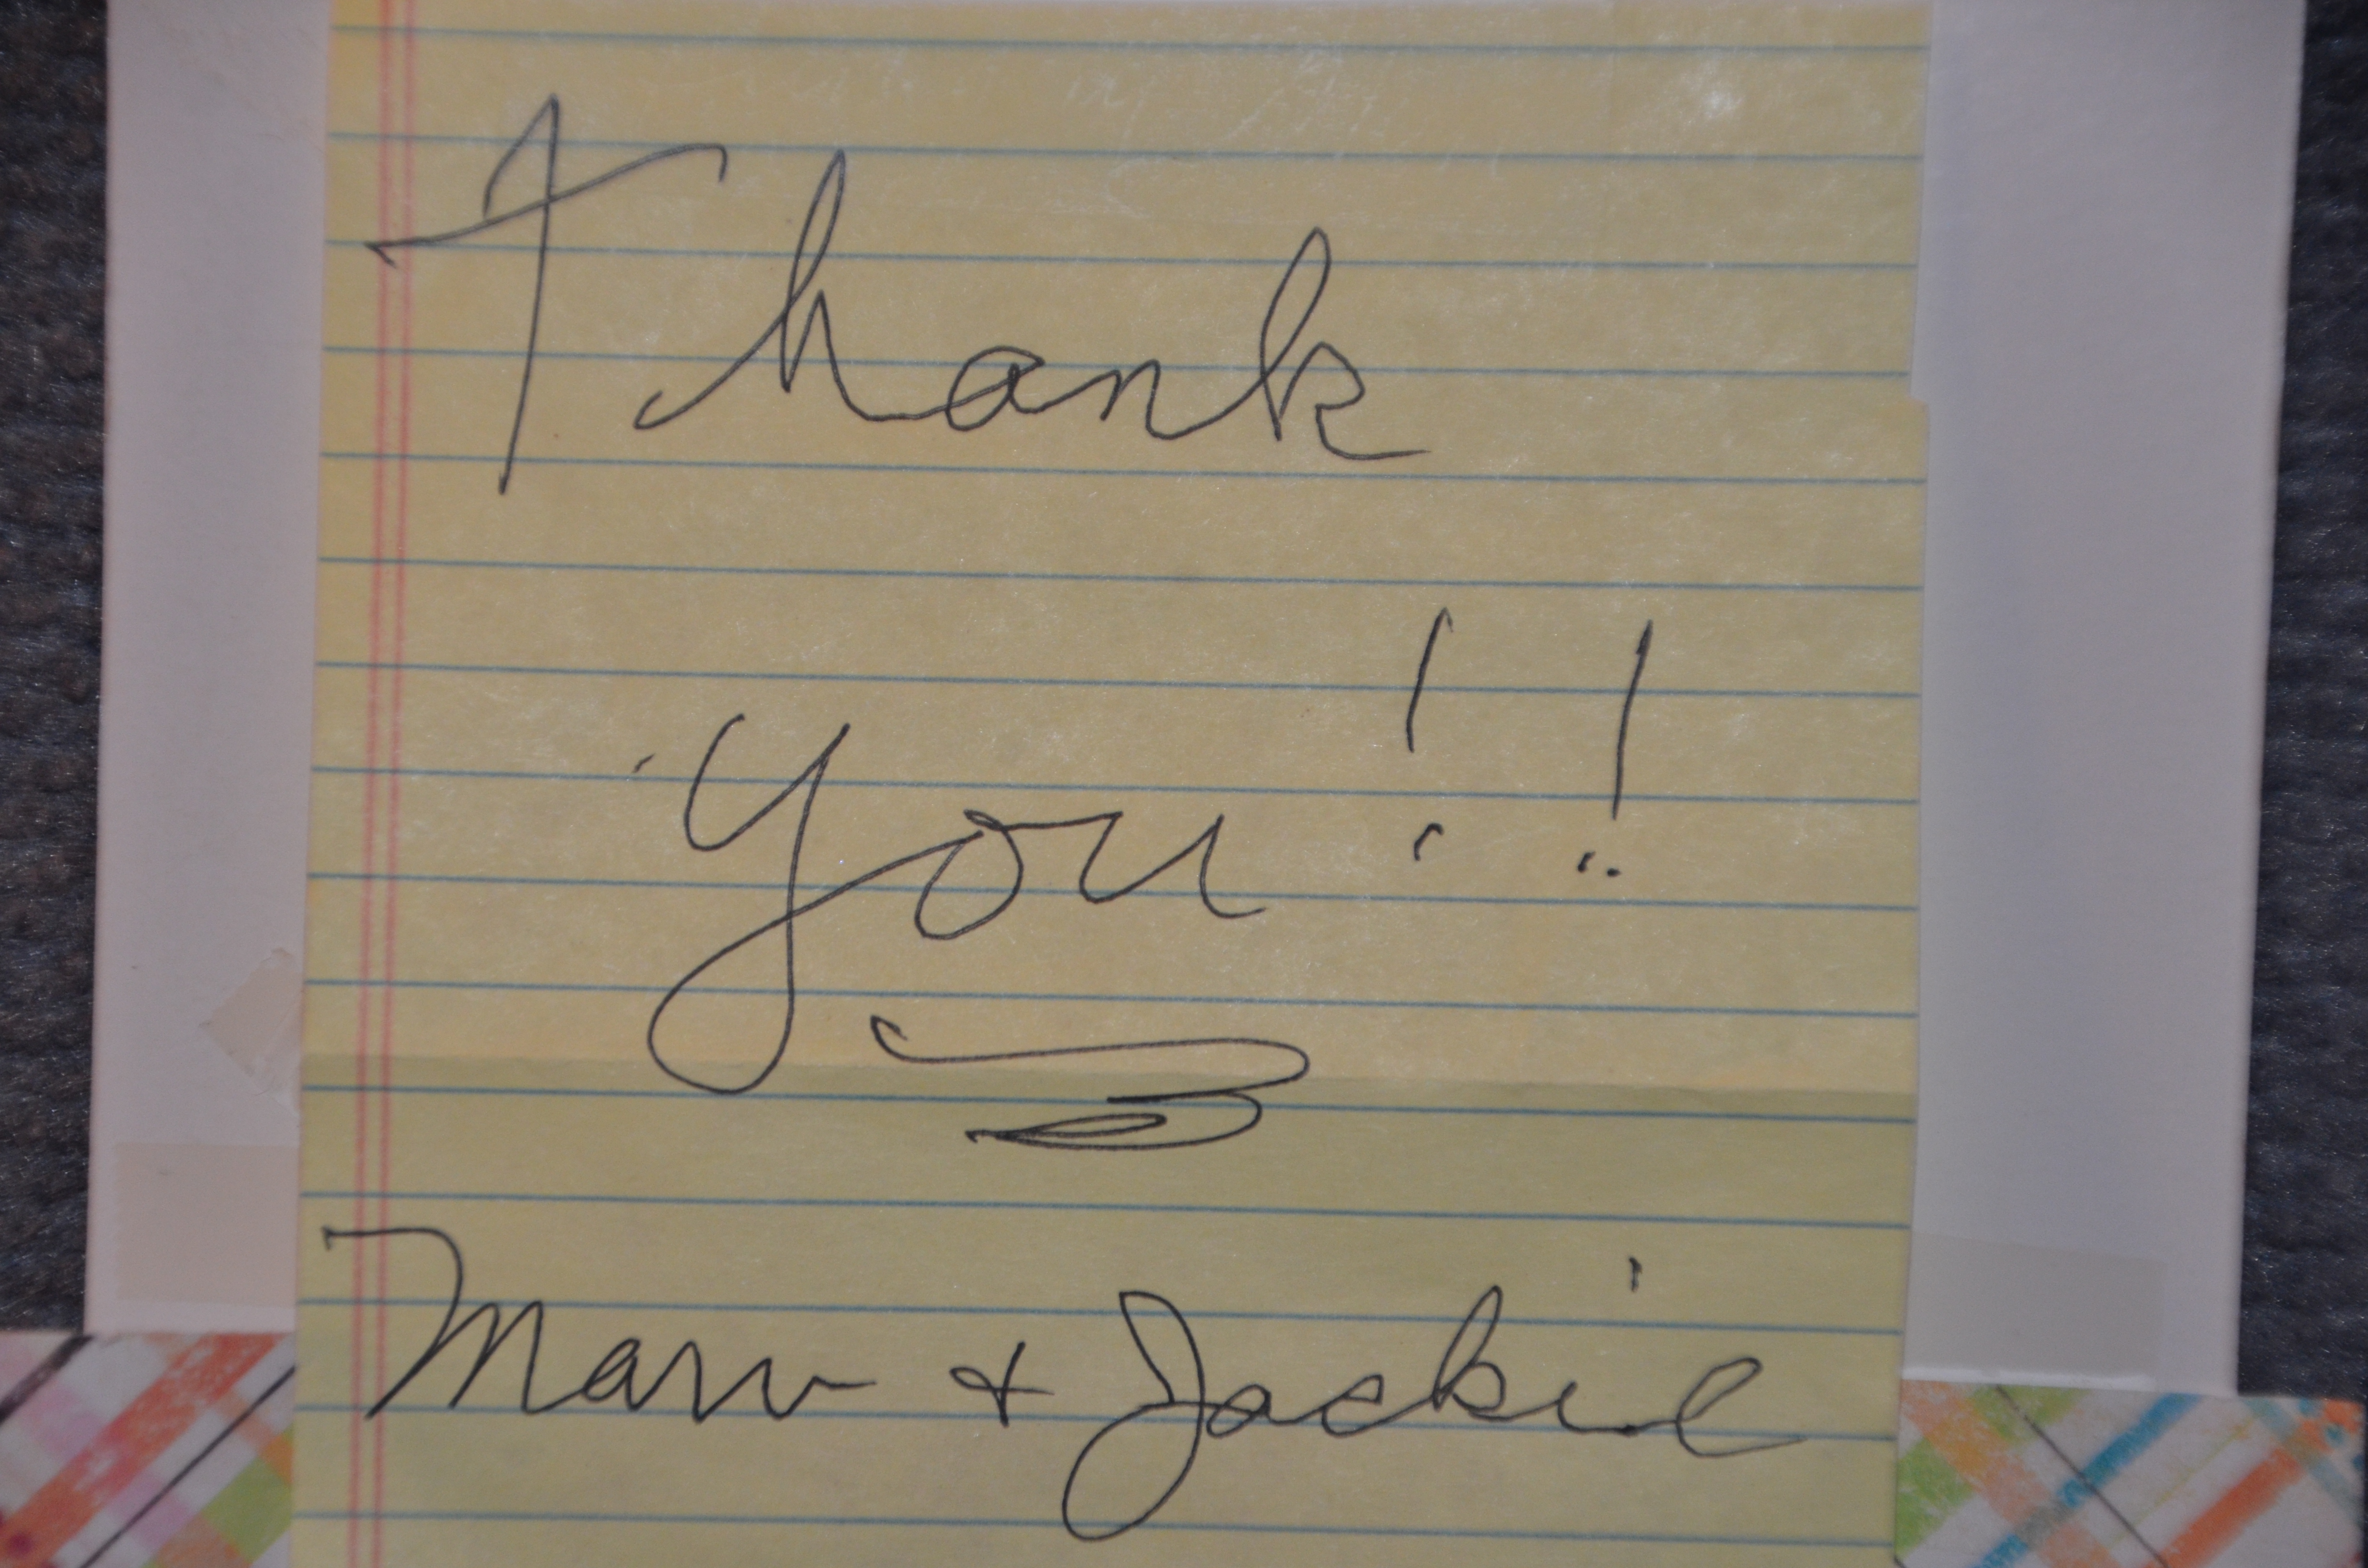 Thank
You!!
Marv + Jackie